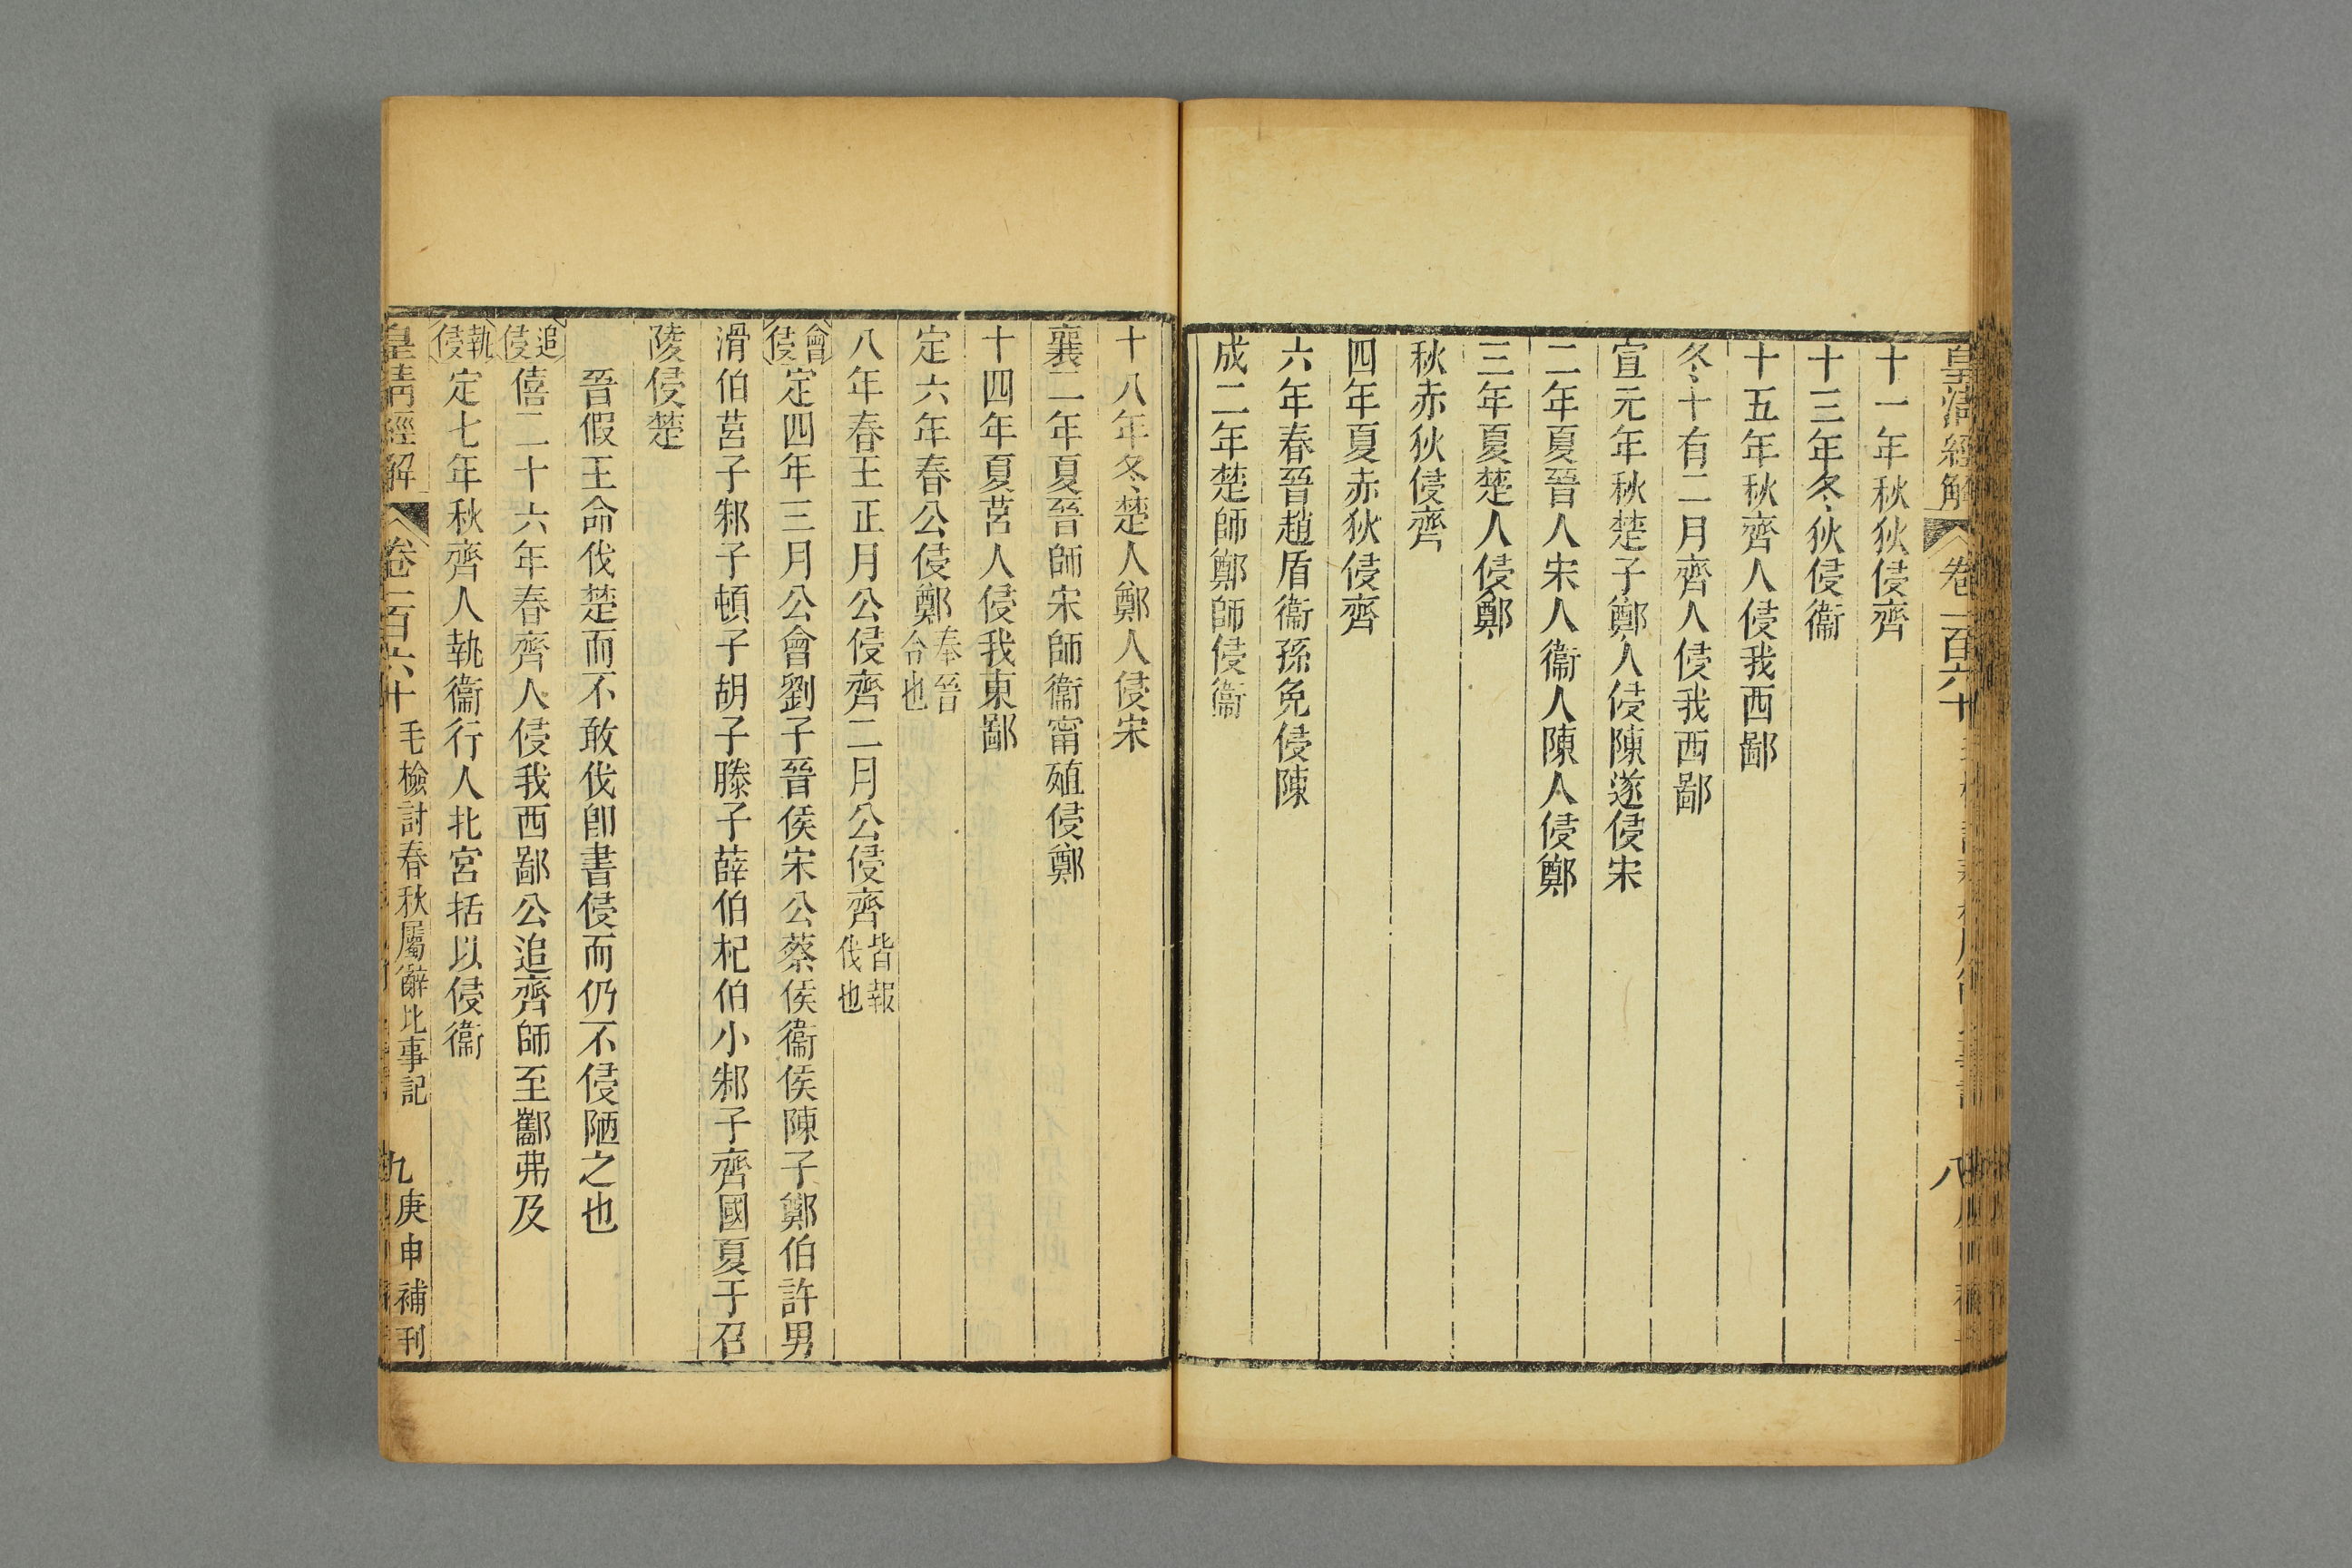 皇清經解 卷一百六十 八
十一年秋狄侵齊
十三年冬狄侵衞
十五年秋齊人侵我西鄙
冬十有二月齊人侵我西鄙
宣元年秋楚子鄭人侵陳遂侵宋
二年夏晉人宋人衞人陳人侵鄭
三年夏楚人侵鄭
秋赤狄侵齊
四年夏赤狄侵齊
六年春晉趙盾衞孫免侵陳
成二年楚師鄭師侵衞
十八年冬楚人鄭人侵宋
襄二年夏晉師宋師衞甯殖侵鄭
十四年夏莒人侵我東鄙
定六年春公侵鄭奉晉令也
八年春王正月公侵齊二月公侵齊皆報伐也
會侵定四年三月公會劉子晉侯宋公蔡侯衞侯陳子鄭伯許男
滑伯莒子邾子頓子胡子滕子薛伯杞伯小邾子齊國夏于召
陵侵楚
晉假王命伐楚而不敢伐卽書侵而仍不侵陋之也
追侵僖二十六年春齊人侵我西鄙公追齊師至酅弗及
執侵定七年秋齊人執衞行人北宮括以侵衞
皇清經解 卷一百六十 毛檢討春秋屬辭比事記 九 庚申補刊